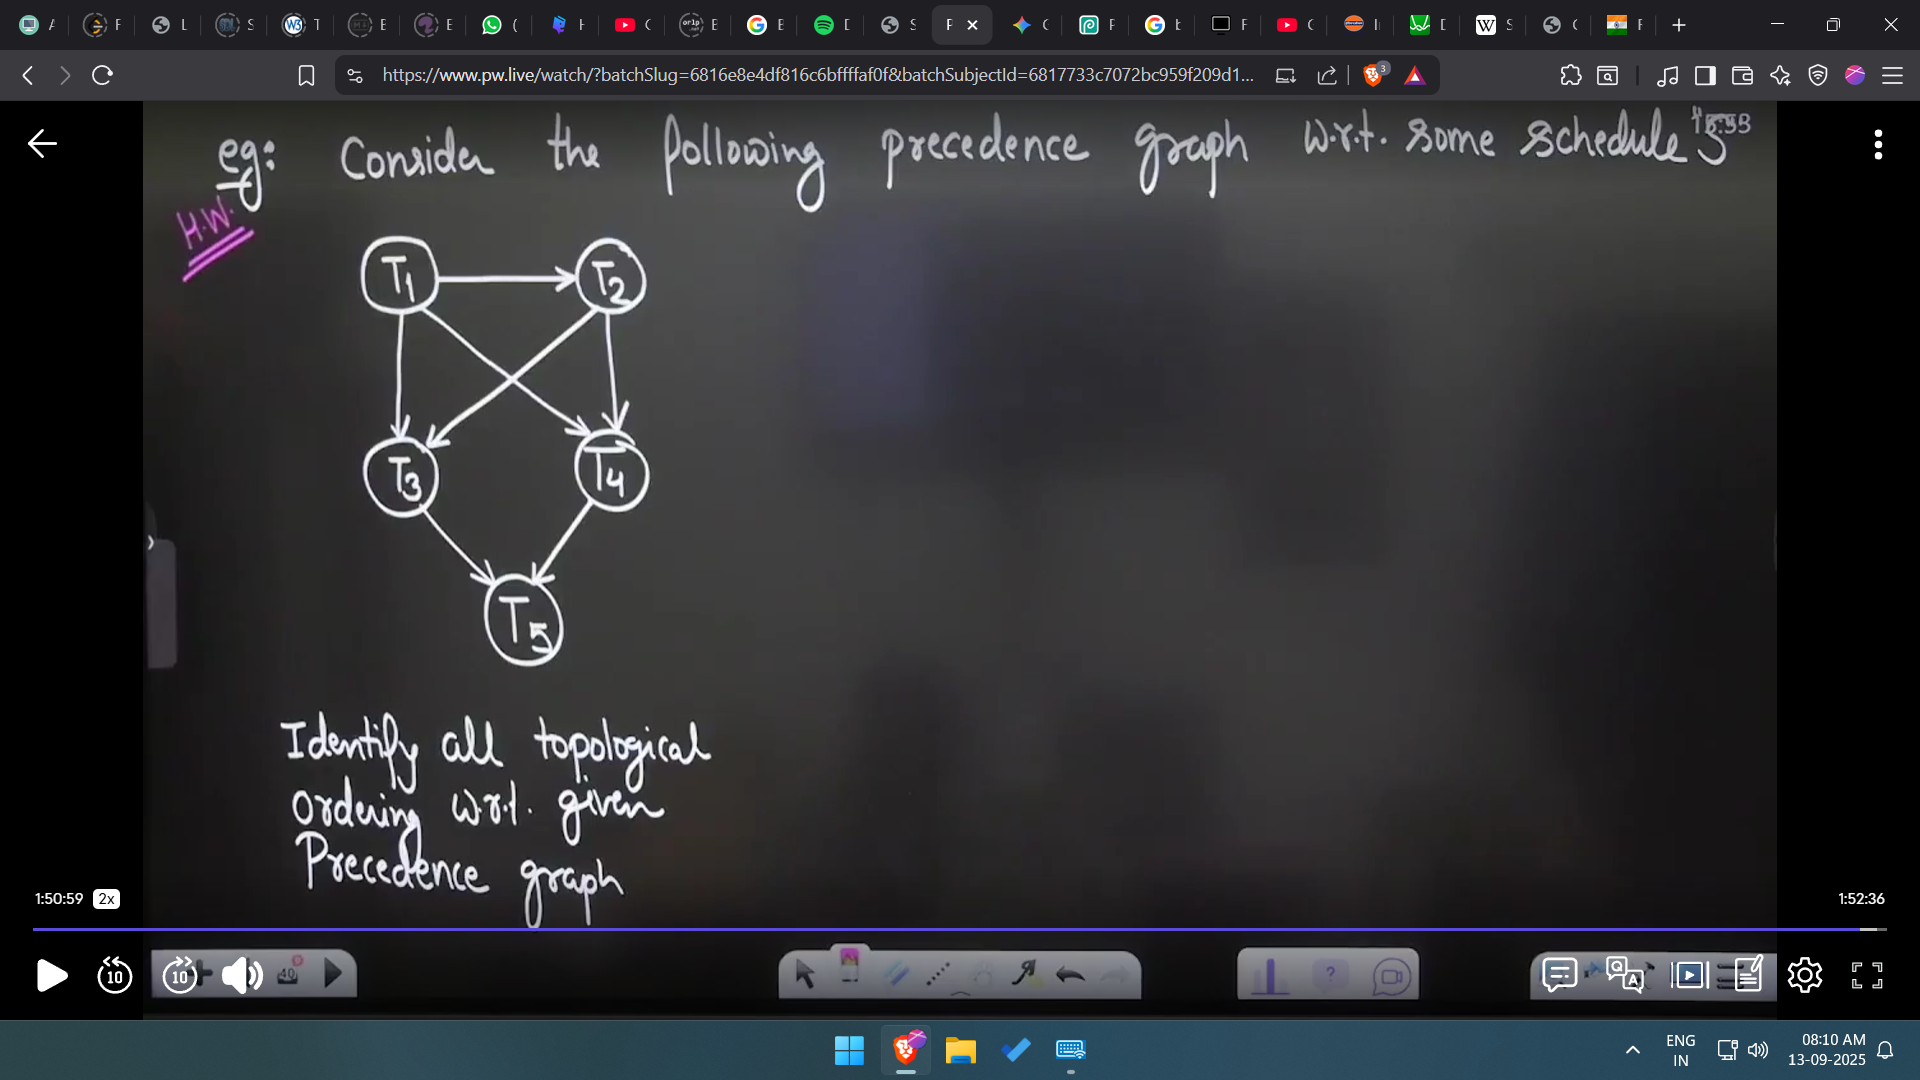 https://www.pw.live/watch/?batchSlug=6816e8e4df816c6bffffaf0f&batchSubjectId=6817733c7072bc959f209d1...
3
eg: Consider the following precedence graph w.r.t. some schedule S
H.W.
T1 T2
T3 T4
T5
Identify all topological
ordering w.r.t. given
Precedence graph
1:50:59 2x 1:52:36
10 10 40
ENG 08:10 AM
IN 13-09-2025